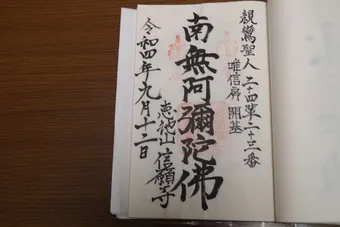 親鸞聖人 二十四輩二十三番
唯信房 開基
南無阿彌陀佛
信願寺
令和四年九月十二日